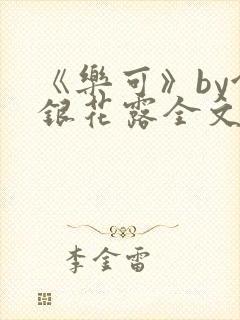 《樂可》by
銀花露全文
李金雷